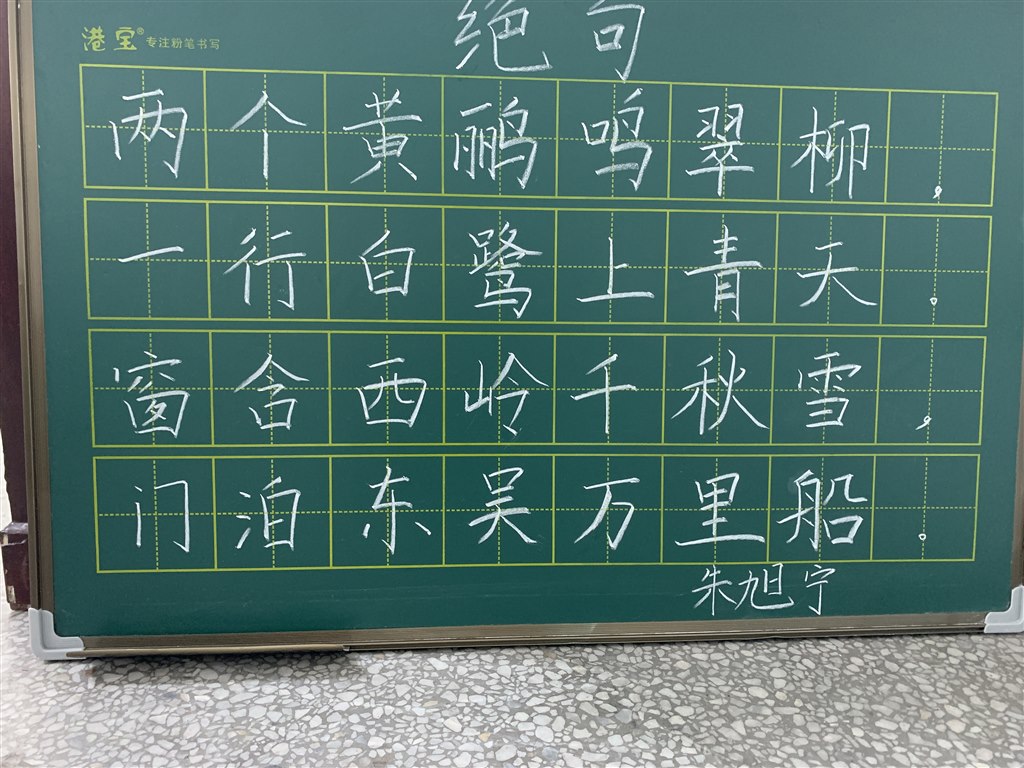 绝句
港宝® 专注粉笔书写
两个黄鹂鸣翠柳，
一行白鹭上青天。
窗含西岭千秋雪，
门泊东吴万里船。
朱旭宁